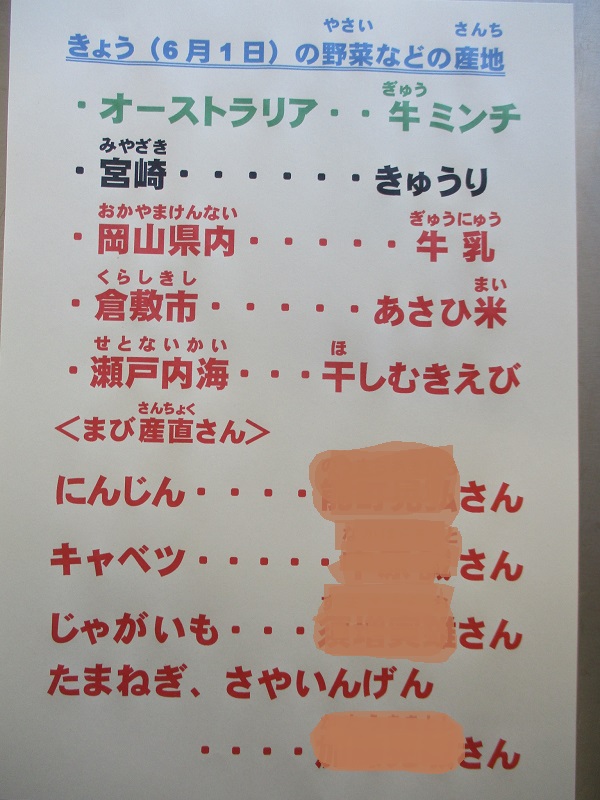 きょう（６月１日）の野菜などの産地
やさい さんち
・オーストラリア・・牛ミンチ
ぎゅう
・宮崎・・・・・・きゅうり
みやざき
・岡山県内・・・・・牛乳
おかやまけんない ぎゅうにゅう
・倉敷市・・・・・あさひ米
くらしきし まい
・瀬戸内海・・・干しむきえび
せとないかい ほ
＜まび産直さん＞
さんちょく
にんじん・・・・さん
キャベツ・・・・・さん
じゃがいも・・・さん
たまねぎ、さやいんげん
・・・・さん